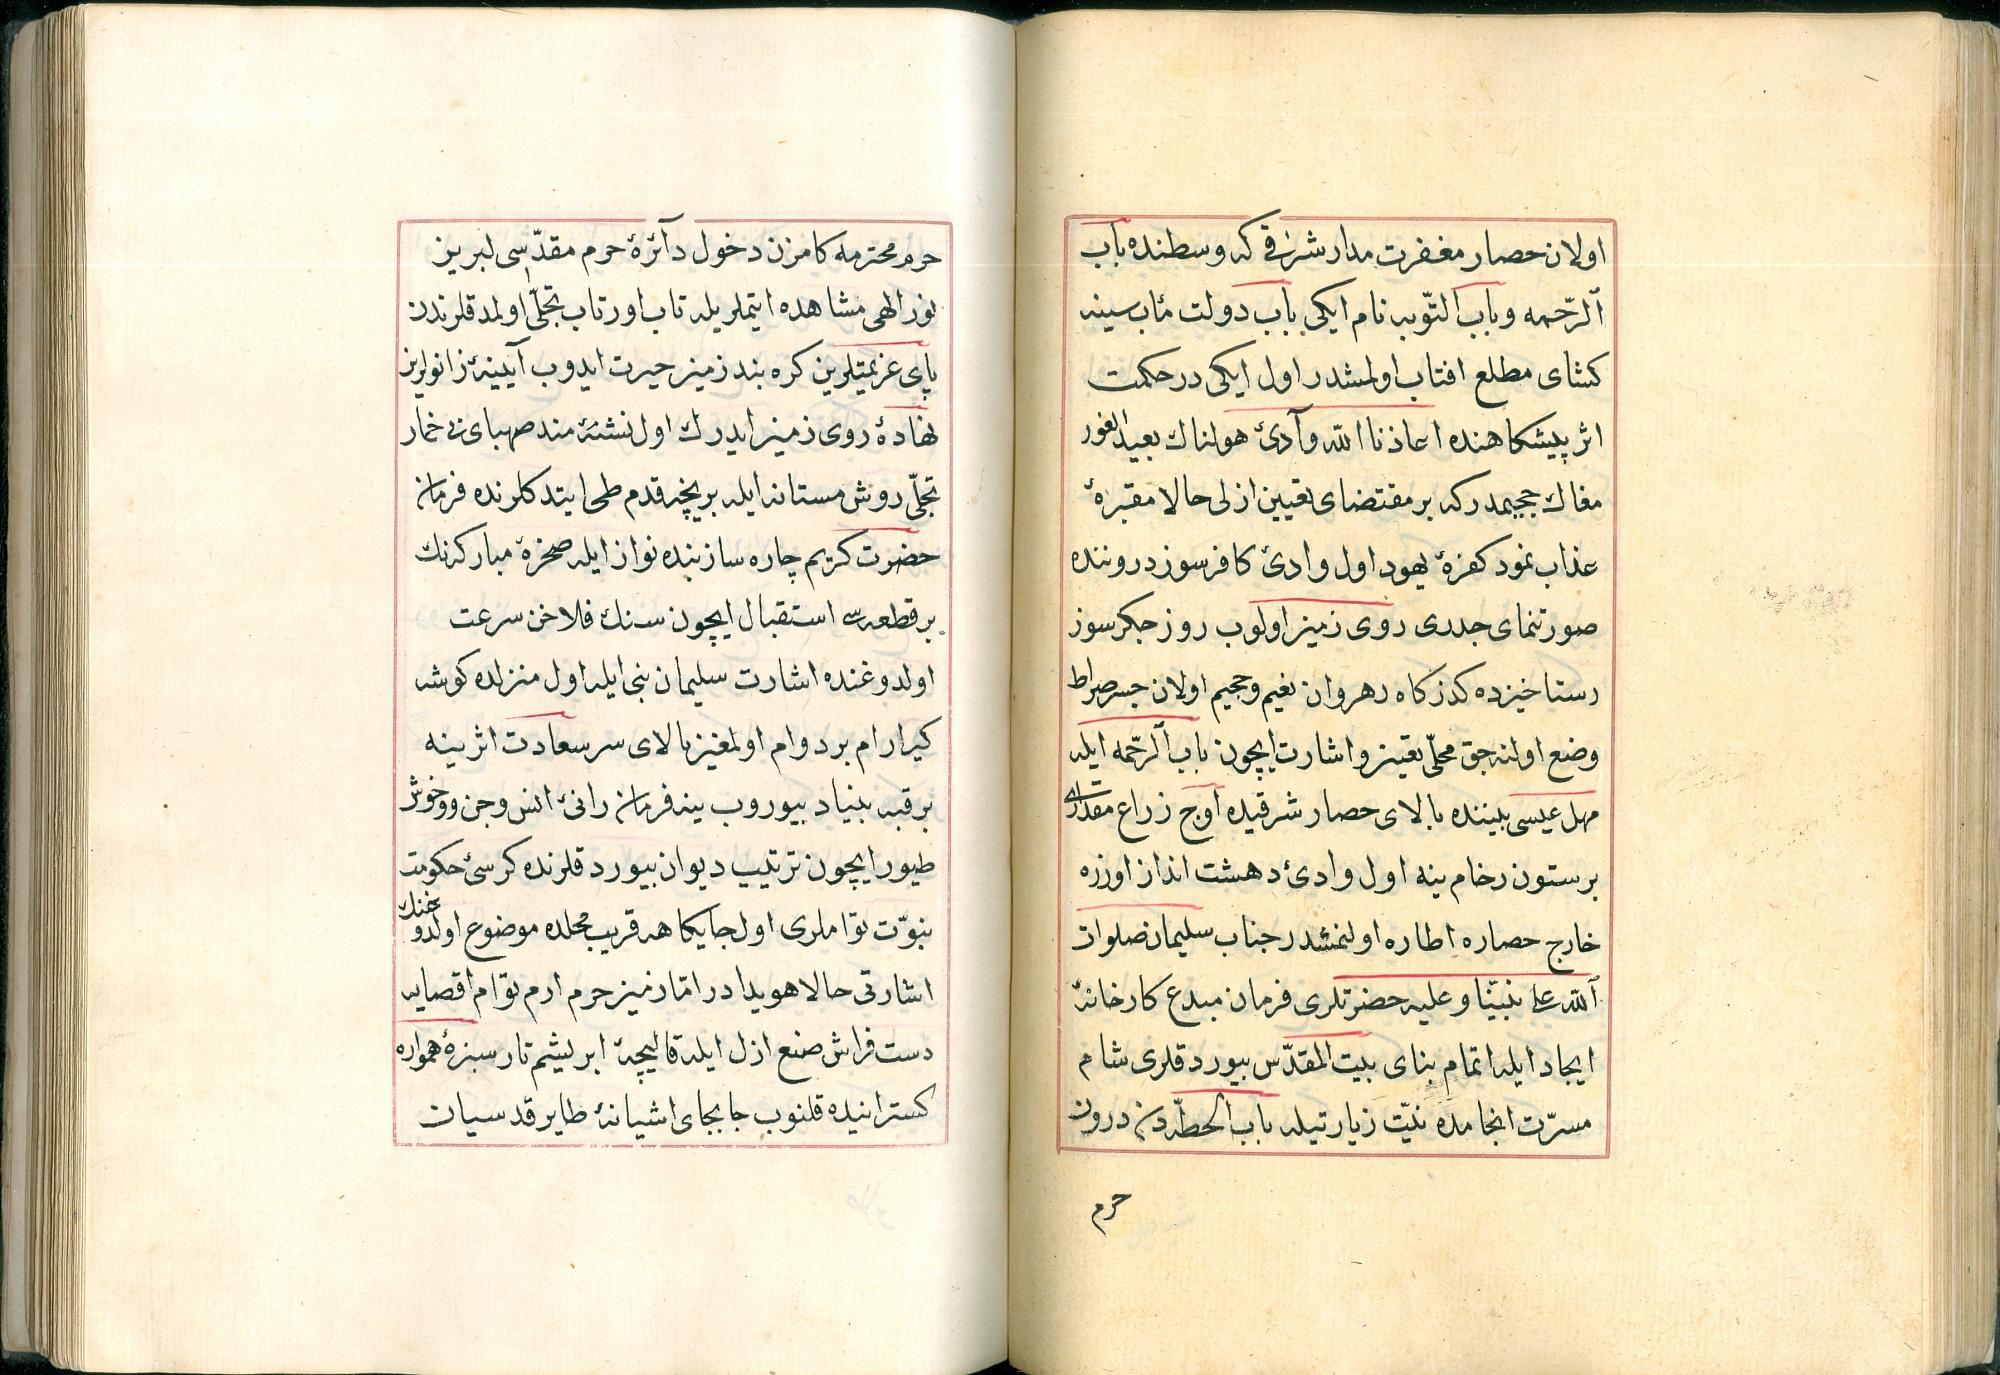 اولان حصار مغفرت مدار شرقی که وسطنده باب
الرّحمه وباب التّوبه نام ایکی باب دولت مأب سینه
کشای مطلع افتاب اولمشدر اول ایکی در حکمت
اثر پیشکاهنده اعاذنا الله وآدئ هولناك بعید الغور
مغاك جحیمدر که بر مقتضای تعیین ازلی حالا مقبرهٔ
عذاب نمود کفرهٔ یهود اول وادئ کافرسوز دروننده
صورتنمای جدری روی زمین اولوب روز جکرسوز
رستاخیزده کذرکاه رهروان نعیم وجحیم اولان جسر صراط
وضع اولنه جق محلّی تعیین واشارت ایچون باب الرّحمه ایله
مهل عیسی بیننده بالای حصار شرقیده اوج زراع مقداری
بر ستون رخام ینه اول وادئ دهشت انداز اوزره
خارج حصاره اطاره اولنمشدر جناب سلیمان صلوات
الله علی نبیّنا وعلیه حضرتلری فرمان مبدع کارخانهٔ
ایجاد ایله اتمام بنای بیت المقدّس بیوردقلری شام
مسرّت انجامده نیّت زیارتیله باب الحطّه دن درون
حرم
حرم محترمه کامزن دخول دآئرهٔ حرم مقدّسی لبریز
نور الهی مشاهده ایتملریله تاب اور تاب تجلّی اولمدقلرندن
پای عزیمتلرین کره بند زمین حیرت ایدوب آیینهٔ زانولرین
نهادهٔ روی زمین ایدرك اول نشئه مند صهبای بی خمار
تجلّی روش مستانه ایله بر نیچه قدم طی ایتدکلرنده فرمان
حضرت کریم چاره ساز بنده نواز ایله صخرهٔ مبارکه نك
بر قطعه سی استقبال ایچون سنك فلاخن سرعت
اولدوغنده اشارت سلیمان نبی ایله اول منزلده کوشه
کیر ارام بر دوام اولمغین بالای سر سعادت اثرینه
بر قبه بنیاد بیوروب ینه فرمان رانئ انس وجن ووحوش
طیور ایچون ترتیب دیوان بیوردقلرنده کرسئ حکومت
نبوّت توأملری اول جایکاهه قریب محلده موضوع اولدوغنك
اشارتی حالا هویدادر امّا زمین حرم ارم توأم اقصایه
دست فراش صنع ازل ایله قالیچهٔ ابریشم تار سبزهٔ همواره
کسترانیده قلنوب جابجای اشیانهٔ طایر قدسیان